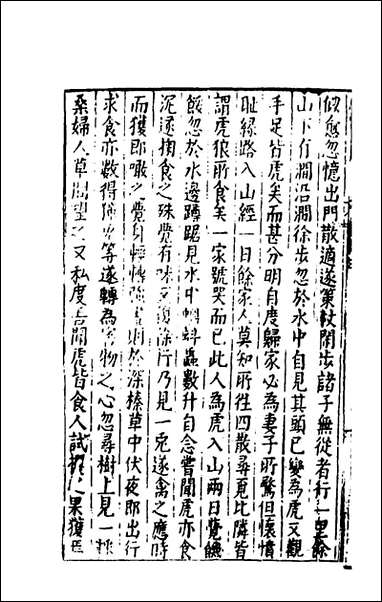 似愈忽憶出門散適遂策杖閑步諸子無從者行一里餘
山下有澗沿澗徐步忽於水中自見其頭已變為虎又觀
手足皆虎矣而甚分明自度歸家必為妻子所驚但懷憤
耻緣路入山經一日餘家人莫知所徃四散尋覓比隣皆
謂虎狼所食矣一家號哭而已此人為虎入山兩日覺飢
餒忽於水邊蹲踞見水中蝌蚪蟲數升自念嘗聞虎亦食
泥遂掬食之殊覺有味又徐行乃見一兎遂禽之應時
而獲即噉之覺身輕轉強晝則於深榛草中伏夜即出行
求食亦數得麞兎等遂轉為害物之心忽尋樹上見一採
桑婦人草間望之又私度吾聞虎皆食人試攫之果獲焉